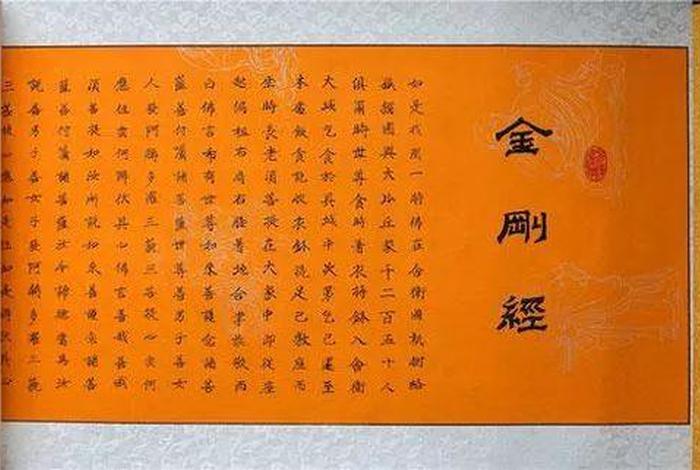 金剛經
如是我聞一時佛在舍衛國祇樹給
孤獨園與大比丘眾千二百五十人
俱爾時世尊食時著衣持鉢入舍衛
大城乞食於其城中次第乞已還至
本處飯食訖收衣鉢洗足已敷座而
坐時長老須菩提在大眾中即從座
起偏袒右肩右膝著地合掌恭敬而
白佛言希有世尊如來善護念諸菩
薩善付囑諸菩薩世尊善男子善女
人發阿耨多羅三藐三菩提心云何
應住云何降伏其心佛言善哉善哉
須菩提如汝所說如來善護念諸菩
薩善付囑諸菩薩汝今諦聽當為汝
說善男子善女子發阿耨多羅三藐
三菩提心應如是住如是降伏其心